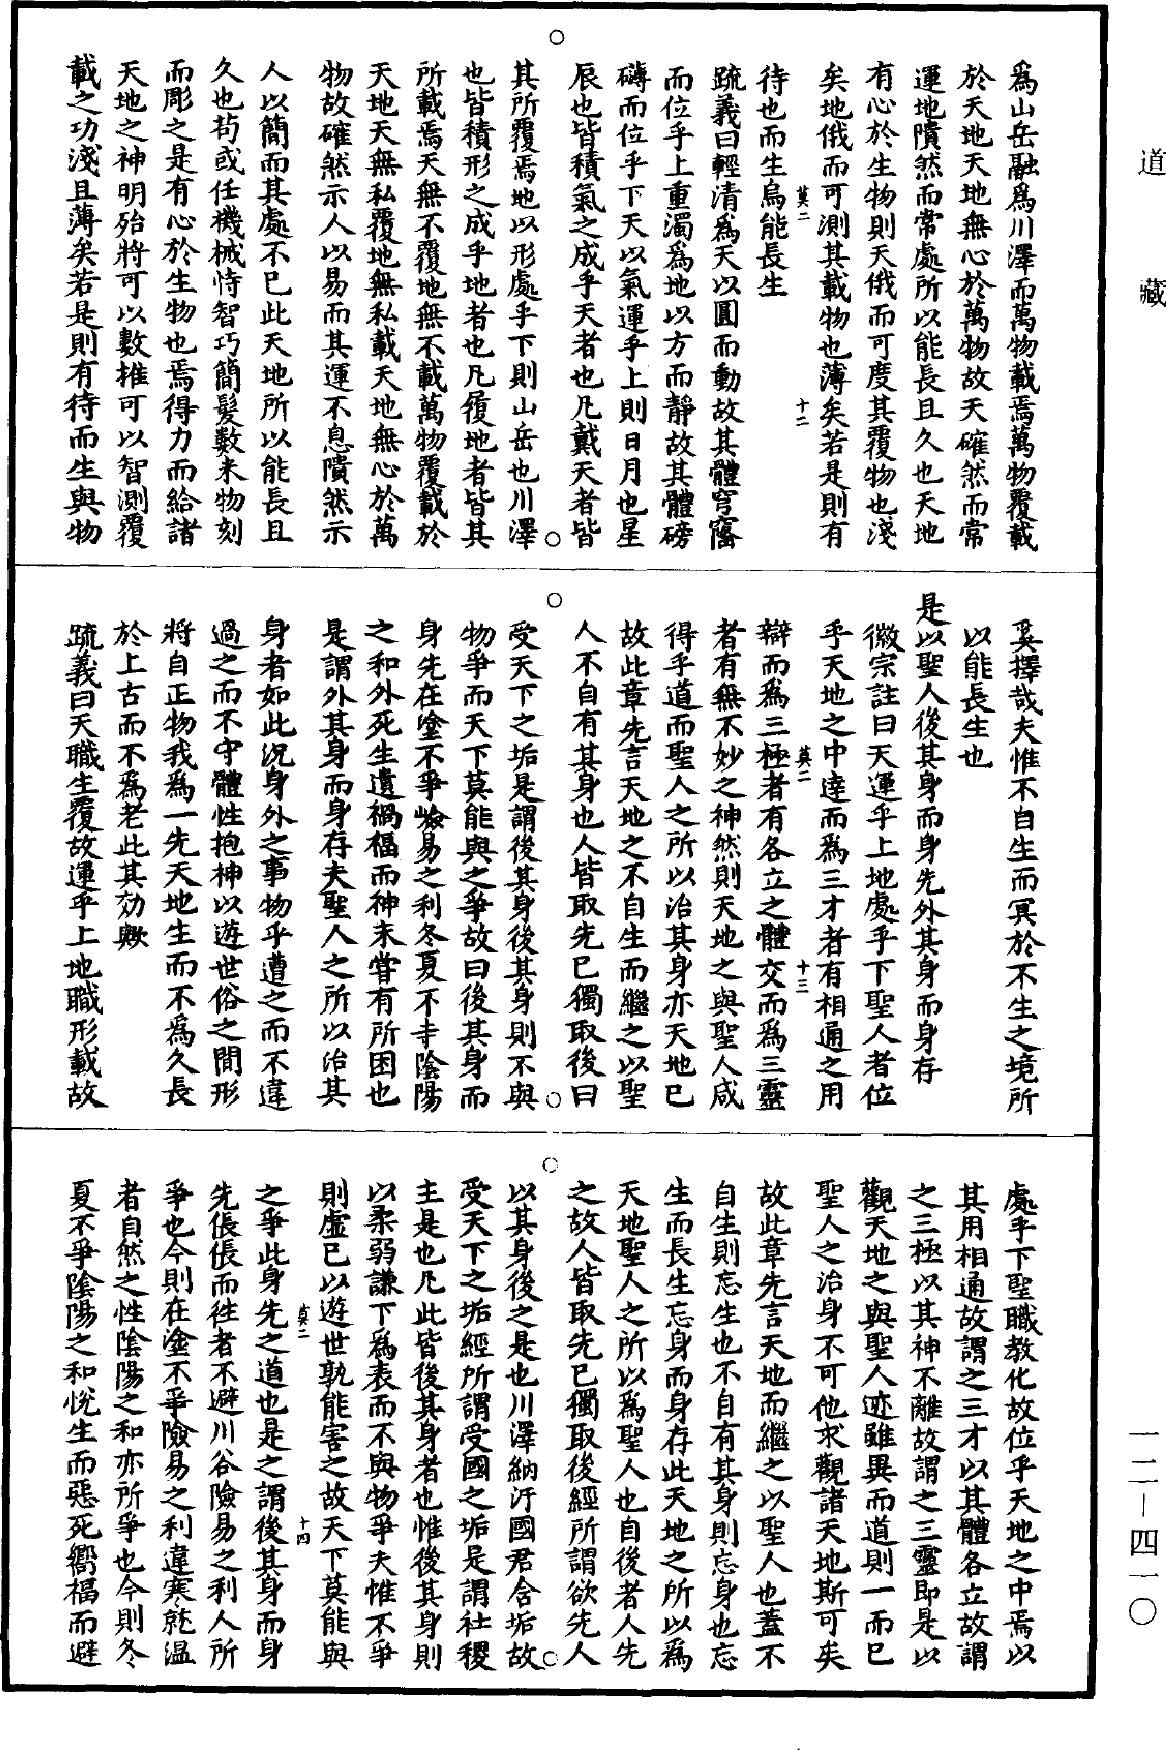 道藏
爲山岳融爲川澤而萬物載焉萬物覆載
於天地天地無心於萬物故天確然而常
運地隤然而常處所以能長且久也天地
有心於生物則天俄而可度其覆物也淺
矣地俄而可測其載物也薄矣若是則有
莫二 十二
待也而生烏能長生
疏義曰輕清爲天以圓而動故其體穹窿
而位乎上重濁爲地以方而靜故其體磅
礴而位乎下天以氣運乎上則日月也星
辰也皆積氣之成乎天者也凡戴天者皆
其所覆焉地以形處乎下則山岳也川澤
也皆積形之成乎地者也凡履地者皆其
所載焉天無不覆地無不載萬物覆載於
天地天無私覆地無私載天地無心於萬
物故確然示人以易而其運不息隤然示
人以簡而其處不已此天地所以能長且
久也苟或任機械恃智巧簡髮數米物刻
而彫之是有心於生物也焉得力而給諸
天地之神明殆將可以數推可以智測覆
載之功淺且薄矣若是則有待而生與物
奚擇哉夫惟不自生而冥於不生之境所
以能長生也
是以聖人後其身而身先外其身而身存
徽宗註曰天運乎上地處乎下聖人者位
乎天地之中達而爲三才者有相通之用
莫二 十三
辯而爲三極者有各立之體交而爲三靈
者有無不妙之神然則天地之與聖人咸
得乎道而聖人之所以治其身亦天地已
故此章先言天地之不自生而繼之以聖
人不自有其身也人皆取先已獨取後曰
受天下之垢是謂後其身後其身則不與
物爭而天下莫能與之爭故曰後其身而
身先在塗不爭險易之利冬夏不爭陰陽
之和外死生遺禍福而神未嘗有所困也
是謂外其身而身存夫聖人之所以治其
身者如此況身外之事物乎遭之而不違
過之而不守體性抱神以遊世俗之間形
將自正物我爲一先天地生而不爲久長
於上古而不爲老此其効歟
疏義曰天職生覆故運乎上地職形載故
處乎下聖職教化故位乎天地之中焉以
其用相通故謂之三才以其體各立故謂
之三極以其神不離故謂之三靈即是以
觀天地之與聖人迹雖異而道則一而已
聖人之治身不可他求觀諸天地斯可矣
故此章先言天地而繼之以聖人也蓋不
自生則忘生也不自有其身則忘身也忘
生而長生忘身而身存此天地之所以爲
天地聖人之所以爲聖人也自後者人先
之故人皆取先已獨取後經所謂欲先人
以其身後之是也川澤納汙國君含垢故
受天下之垢經所謂受國之垢是謂社稷
主是也凡此皆後其身者也惟後其身則
以柔弱謙下爲表而不與物爭夫惟不爭
則虛已以遊世孰能害之故天下莫能與
莫二 十四
之爭此身先之道也是之謂後其身而身
先倀倀而往者不避川谷險易之利人所
爭也今則在塗不爭險易之利違寒就溫
者自然之性陰陽之和亦所爭也今則冬
夏不爭陰陽之和悅生而惡死嚮福而避
一二—四一〇